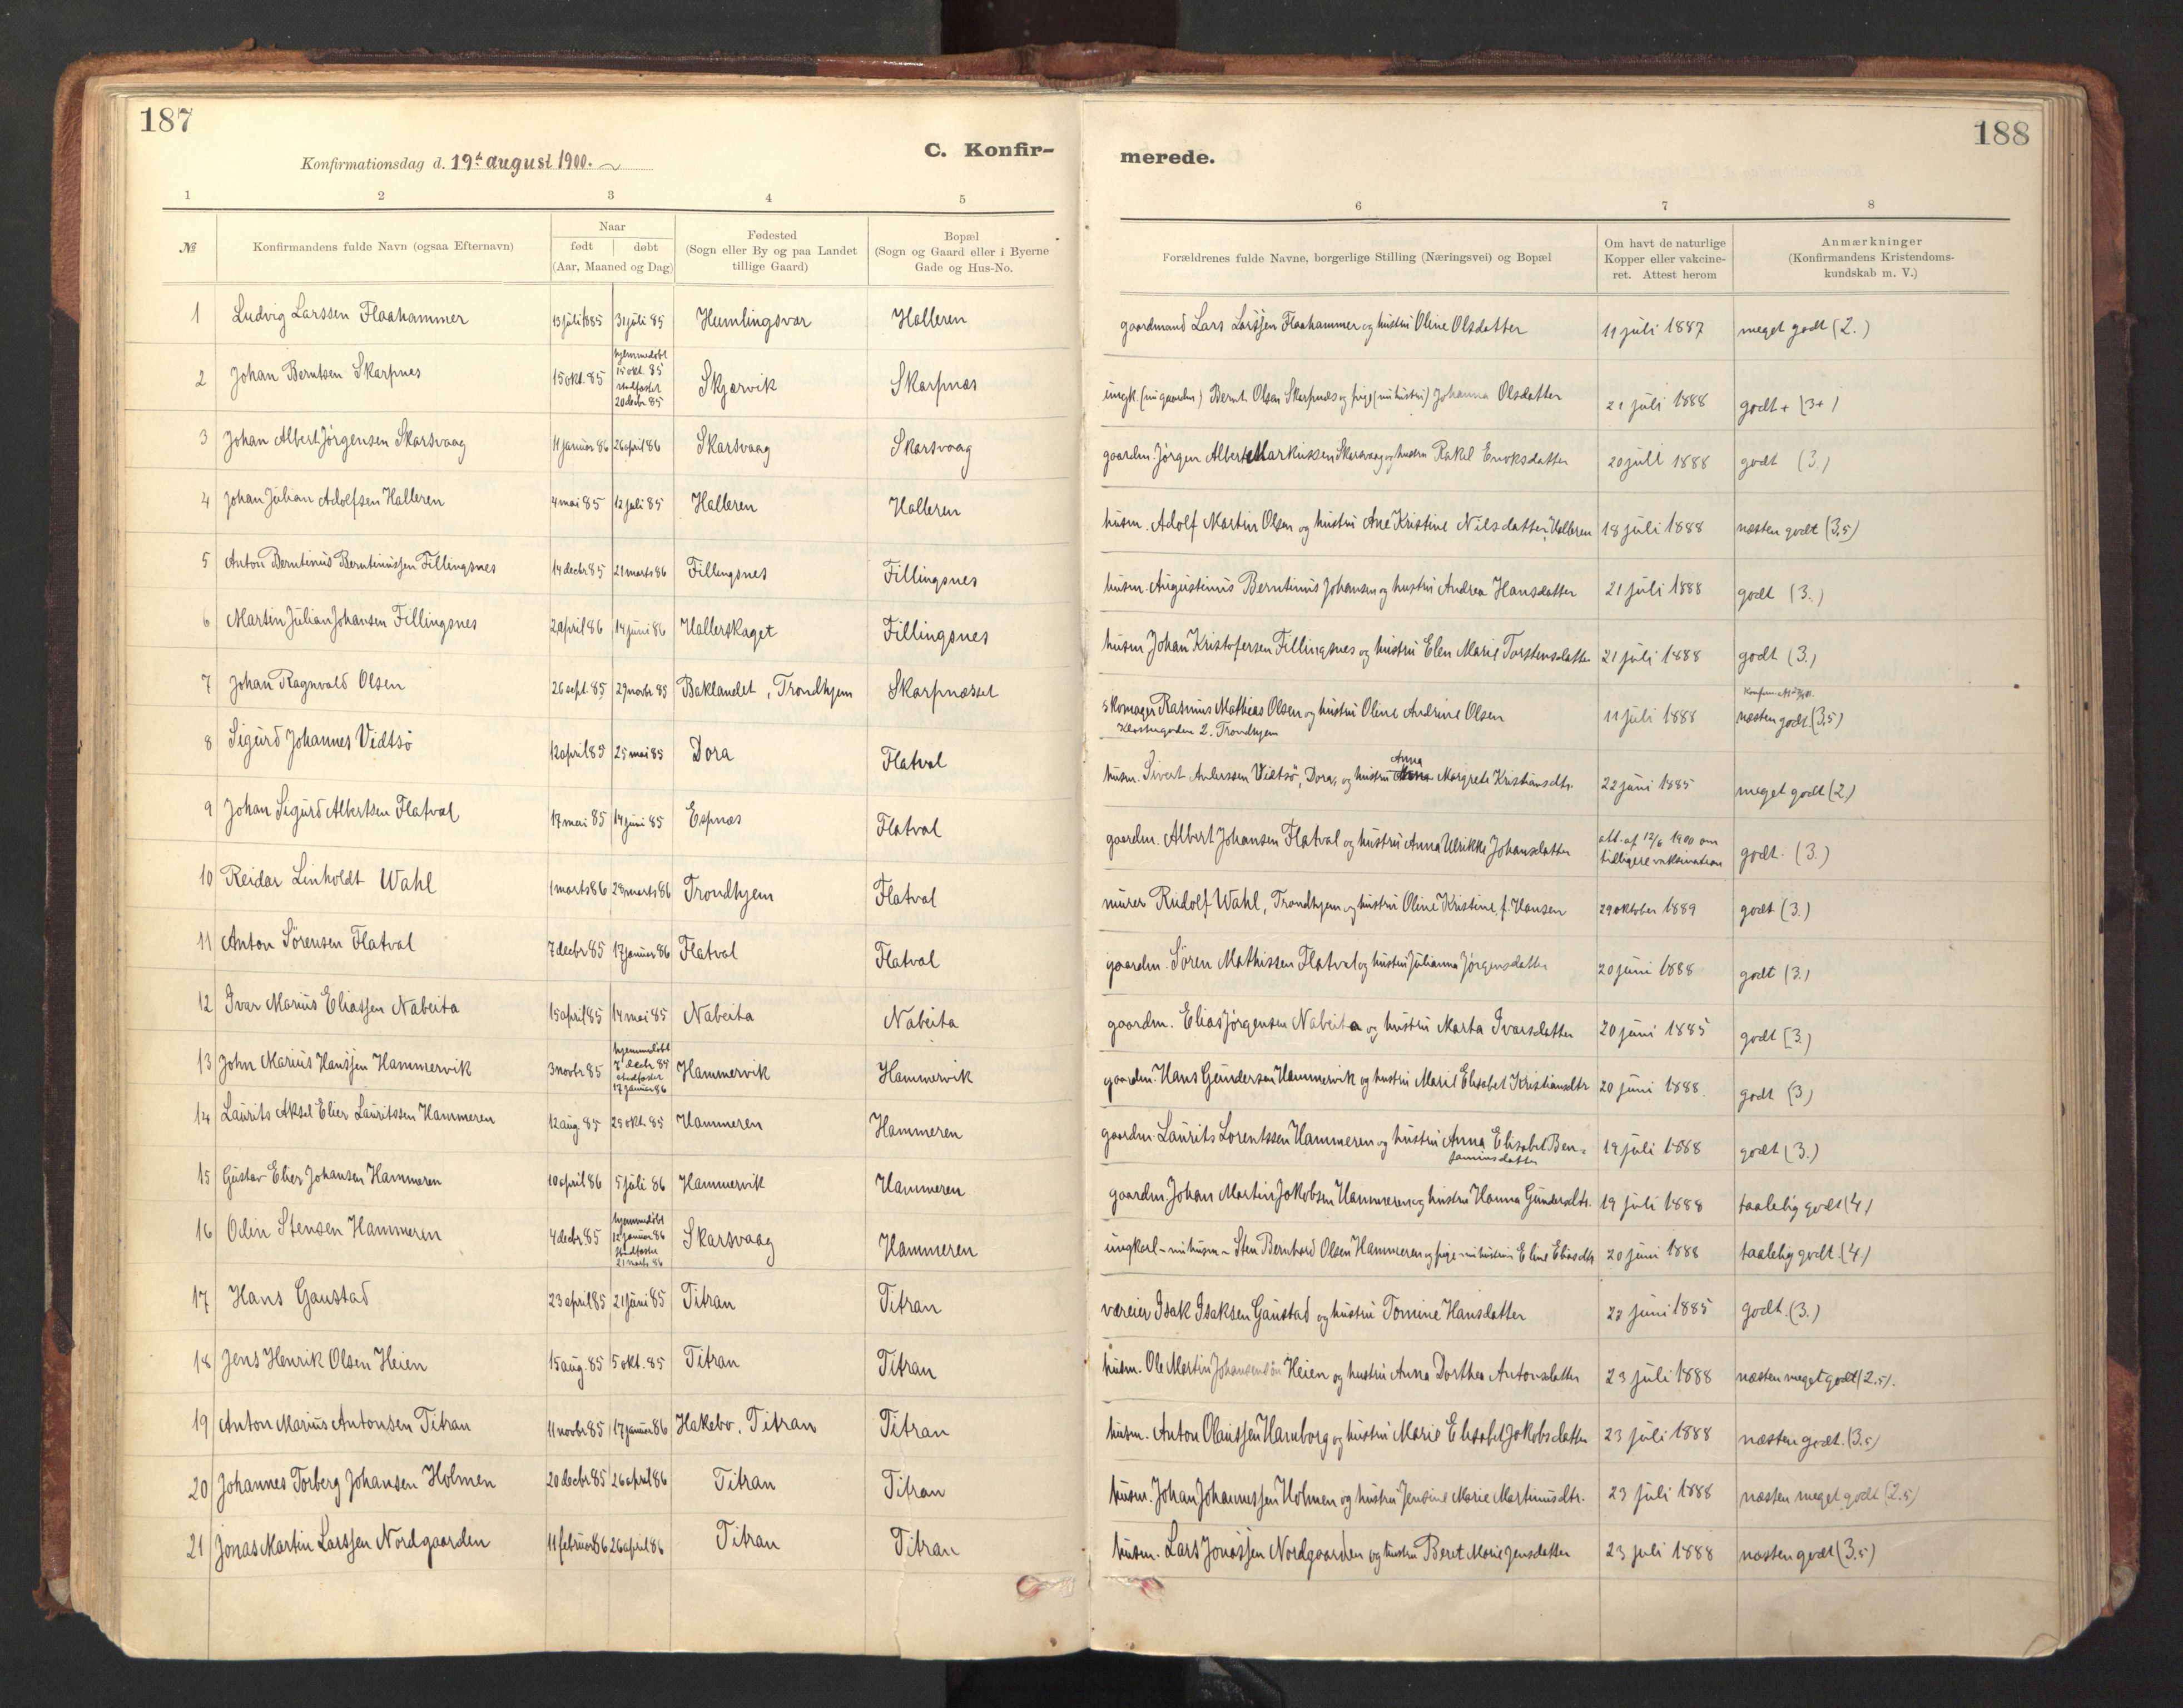 187
188
C. Konfir-
merede.
Konfirmationsdag d. 19de august 1900.
1 2 3 4 5 6 7 8
№ Konfirmandens fulde Navn (ogsaa Efternavn) Naar født døbt (Aar, Maaned og Dag) Fødested (Sogn eller By og paa Landet tillige Gaard) Bopæl (Sogn og Gaard eller i Byerne Gade og Hus-No. Forældrenes fulde Navne, borgerlige Stilling (Næringsvei) og Bopæl Om havt de naturlige Kopper eller vakcine-ret. Attest herom Anmærkninger (Konfirmandens Kristendoms-kundskab m. V.)
1 Ludvig Larssen Flaahammer 13 juli 1885 31 juli 85 Humlingsvær Halleren gaardmand Lars Larssen Flaahammer og hustru Oline Olsdatter 11 juli 1887 meget godt (2.)
2 Johan Berntsen Skarpnes 15 okt. 85 hjemmedøbt 15 okt. 85 stadfæstet 20 decbr 85 Skjærvik Skarpnæs ungk. (nu gaardm) Bernt Olsen Skarpnæs og pige (nu hustru) Johanna Olsdatter 21 juli 1888 godt + (3+)
3 Johan Albert Jørgensen Skarsvaag 11 januar 86 26 april 86 Skarsvaag Skarsvaag gaardm. Jørgen Albert Markussen Skarsvaag og hustru Rakel Enoksdatter 20 juli 1888 godt (3.)
4 Johan Julian Adolfsen Halleren 4 mai 85 12 juli 85 Halleren Halleren husm. Adolf Martin Olsen og hustru Ane Kristine Nilsdatter, Halleren 18 juli 1888 næsten godt (3,5)
5 Anton Berntinus Berntinussen Fillingsnes 14 decbr 85 21 marts 86 Fillingsnes Fillingsnes husm. Augustinus Berntinus Johansen og hustru Andrea Hansdatter 21 juli 1888 godt (3.)
6 Martin Julian Johansen Fillingsnes 2 april 86 14 juni 86 Hallerskaget Fillingsnes husm Johan Kristofersen Fillingsnes og hustru Elen Marie Torstensdatter 21 juli 1888 godt (3.)
7 Johan Ragnvald Olsen 26 sept. 85 29 novbr 85 Baklandet, Trondhjem Skarpnæsset skomager Rasmus Mathias Olsen og hustru Oline Andrine Olsen 11 juli 1888 næsten godt (3,5)
Klostergaden 2. Trondhjem
8 Sigurd Johannes Vidtsö 12 april 85 25 mai 85 Dora Flatval husm. Sivert Anderssen Vidtsö, Dora, og hustru Anna Margrete Kristiansdtr. 22 juni 1885 meget godt (2.)
9 Johan Sigurd Albertsen Flatval 17 mai 85 14 juni 85 Espnæs Flatval gaardm. Albert Johansen Flatval og hustru Anna Ulrikke Johansdatter att. af 12/6 1900 om tidligere vaksination godt. (3.)
10 Reidar Linholdt Wahl 1 marts 86 28 marts 86 Trondhjem Flatval murer Rudolf Wahl, Trondhjem og hustru Oline Kristine, f. Hansen 29 oktober 1889 godt (3.)
11 Anton Sörensen Flatval 7 decbr 85 17 januar 86 Flatval Flatval gaardm. Sören Mathissen Flatval og hustru Julianna Jørgensdatter 20 juni 1888 godt (3.)
12 Ivar Marius Eliassen Nabeita 15 april 85 14 mai 85 Nabeita Nabeita gaardm. Elias Jørgensen Nabeita og hustru Marta Ivarsdatter 20 juni 1885 godt (3.)
13 John Marius Hanssen Hammervik 3 novbr 85 hjemmedøbt 7 decbr 85 stadfæstet 17 januar 86 Hammervik Hammervik gaardm. Hans Gundersen Hammervik og hustru Marie Elisabet Kristiansdtr 20 juni 1888. godt (3)
14 Laurits Aksel Elier Lauritssen Hammeren 12 aug. 85 25 okt. 85 Hammeren Hammeren gaardm. Laurits Lorentssen Hammeren og hustru Anna Elisabet Ben=jaminsdatter 19 juli 1888 godt (3.)
15 Gustav Elier Johansen Hammeren 10 april 86 5 juli 86 Hammervik Hammeren gaardm. Johan Martin Jakobsen Hammeren og hustru Hanna Gundersdtr. 19 juli 1888 taalelig godt (4)
16 Odin Stensen Hammeren 4 decbr. 85 hjemmedöbt 12 januar 86 stadfæstet 21 marts 86 Skarsvaag Hammeren ungkarl - nu husm - Sten Bernhard Olsen Hammeren og pige - nu hustru Eline Eliasdtr 20 juni 1888 taalelig godt. (4)
17 Hans Gaustad 23 april 85 21 juni 85 Titran Titran væreier Isak Isaksen Gaustad og hustru Tomine Hansdatter juni 1885 godt. (3.)
18 Jens Henrik Olsen Heien 15 aug. 85 5 okt. 85 Titran Titran husm. Ole Martin Johansensön Heien og hustru Anna Dorthea Antonsdatter 23 juli 1888 næsten meget godt (2.5).
19 Anton Marius Antonsen Titran 11 novbr 85 17 januar 86 Hakebo, Titran Titran husm. Anton Olaussen Hamborg og hustru Marie Elisabet Jakobsdatter 23 juli 1888 næsten godt. (3.5)
20 Johannes Torberg Johansen Holmen 20 decbr 85 26 april 86 Titran Titran husm. Johan Johannessen Holmen og hustru Jensine Marie Martinusdtr. 23 juli 1888 næsten meget godt (2.5)
21 Jonas Martin Larssen Nordgaarden 11 februar 86 26 april 86 Titran Titran husm. Lars Jonassen Nordgaarden og hustru Beret Marie Jensdatter 23 juli 1888 næsten godt (3.5)